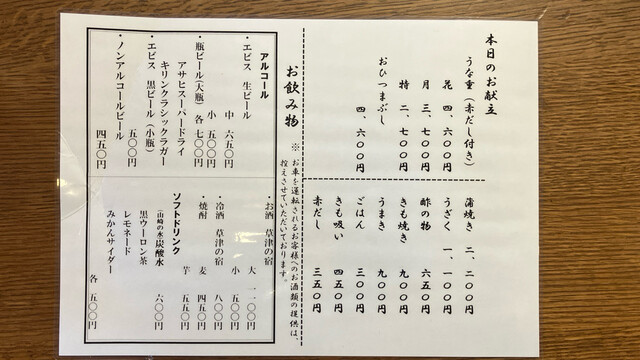 本日のお献立
うな重（赤だし付き）
花 四、六〇〇円
月 三、七〇〇円
特 二、七〇〇円
おひつまぶし
四、六〇〇円
蒲焼き 二、二〇〇円
うざく 一、一〇〇円
酢の物 六五〇円
きも焼き 九〇〇円
うまき 九〇〇円
ごはん 三〇〇円
きも吸い 四五〇円
赤だし 三五〇円
お飲み物
※ お車を運転されるお客様へのお酒類の提供は、
控えさせていただいております。
アルコール
・エビス 生ビール
中 六五〇円
小 五〇〇円
・瓶ビール（大瓶）各 七〇〇円
アサヒスーパードライ
キリンクラシックラガー
・エビス 黒ビール（小瓶）
五〇〇円
・ノンアルコールビール
四五〇円
・お酒 草津の宿
大 一一〇〇円
小 五〇〇円
・冷酒 草津の宿 八〇〇円
・焼酎 麦 四五〇円
芋 五五〇円
ソフトドリンク
（山崎の水）炭酸水 六〇〇円
黒ウーロン茶
レモネード
みかんサイダー
各 五〇〇円